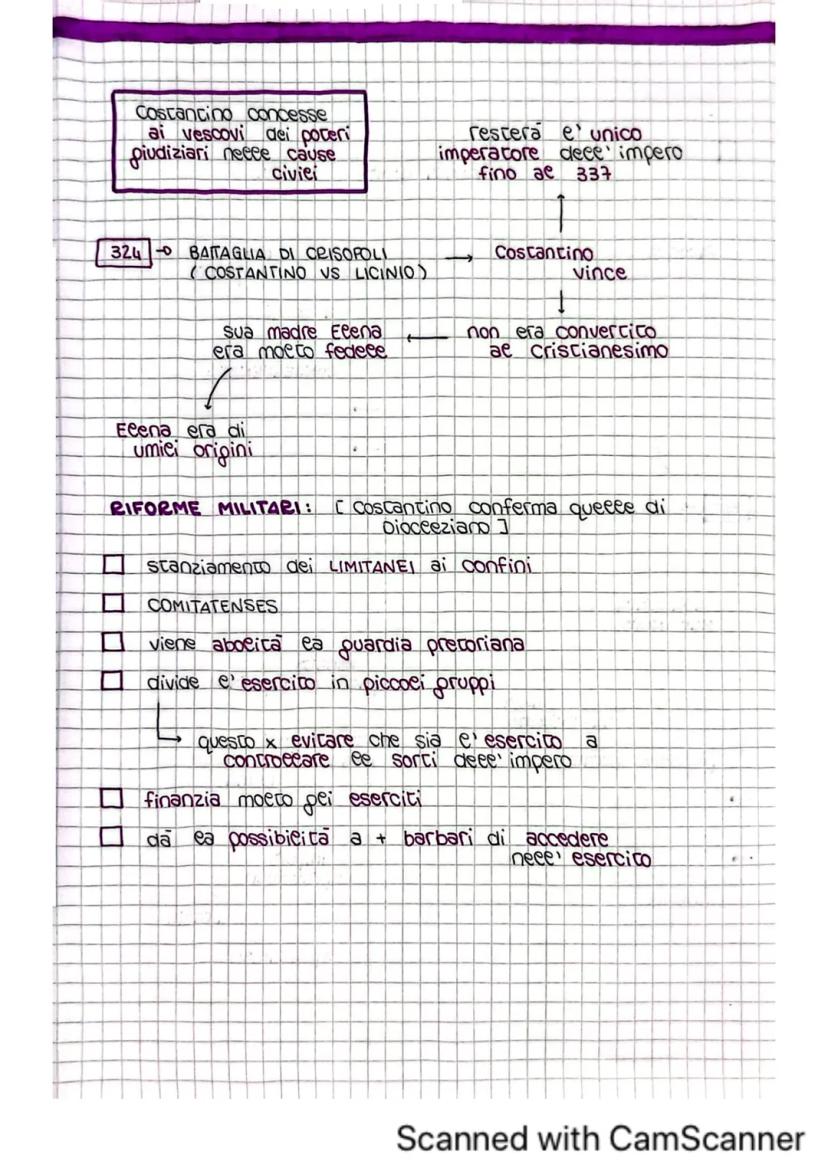 Costantino concesse
ai vescovi dei poteri
giudiziari nelle cause
civili
resterà l'unico
imperatore dell'impero
fino al 337
324 → BATTAGLIA DI CRISOPOLI → Costantino
(COSTANTINO VS LICINIO) vince
sua madre Elena ← non era convertito
era molto fedele al cristianesimo
Elena era di
umili origini
RIFORME MILITARI: [ Costantino conferma quelle di
Diocleziano ]
□ stanziamento dei LIMITANEI ai confini
□ COMITATENSES
□ viene abolità la guardia pretoriana
□ divide l'esercito in piccoli gruppi
↳ questo x evitare che sia l'esercito a
controllare le sorti dell'impero
□ finanzia molto gli eserciti
□ dà la possibilità a + barbari di accedere
nell'esercito
Scanned with CamScanner